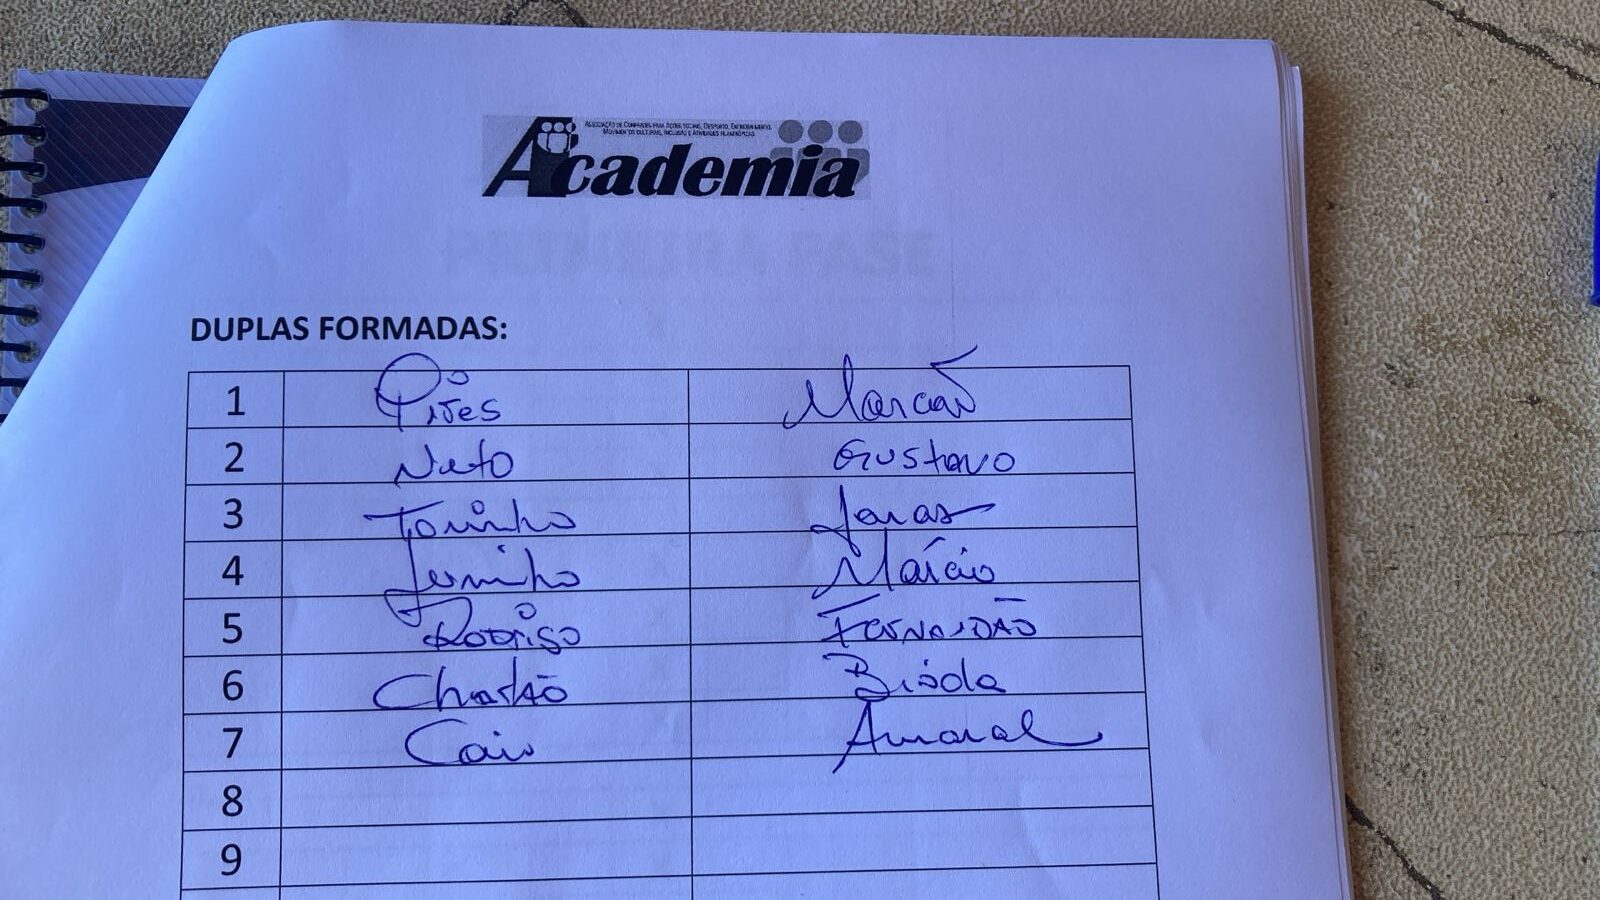 ASSOCIAÇÃO DE CONFRADES PARA AÇÕES SOCIAIS, DESPORTO, ENTRETENIMENTO,
MOVIMENTOS CULTURAIS, INCLUSÃO E ATIVIDADES FILANTRÓPICAS
Academia
DUPLAS FORMADAS:
1 Pires Marcão
2 Neto Gustavo
3 Toninho Jonas
4 Juninho Márcio
5 Rodrigo Fernandão
6 Chorão
7 Caio Amaral
8
9